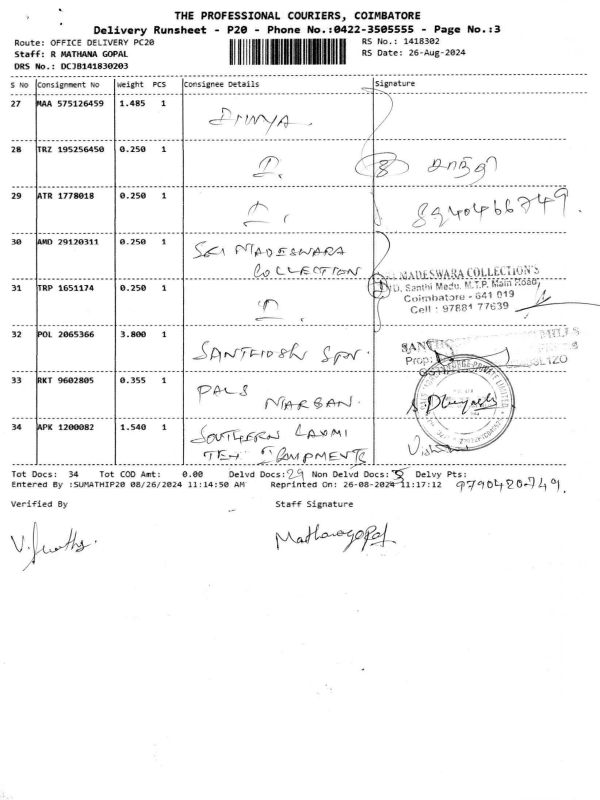 THE PROFESSIONAL COURIERS, COIMBATORE
Delivery Runsheet - P20 - Phone No.:0422-3505555 - Page No.:3
Route: OFFICE DELIVERY PC20 RS No.: 1418302
Staff: R MATHANA GOPAL RS Date: 26-Aug-2024
DRS No.: DCJB141830203
S No Consignment No Weight PCS Consignee Details Signature
27 MAA 575126459 1.485 1
28 TRZ 195256450 0.250 1 சாந்தி
29 ATR 1778018 0.250 1 8940466749.
30 AMD 29120311 0.250 1 SRI MADESWARA
COLLECTION
MADESWARA COLLECTION'S
31 TRP 1651174 0.250 1 D, Santhi Medu, M.T.P. Main Road,
Coimbatore - 641 019
Cell : 97881 77639
32 POL 2065366 3.800 1 SANTHOSH SPN.
MILLS
Prop:
33 RKT 9602805 0.355 1 PALS
NARBAN.
34 APK 1200082 1.540 1 SOUTHERN LAXMI
TEX EQUIPMENTS
Tot Docs: 34 Tot COD Amt: 0.00 Delvd Docs:29 Non Delvd Docs:5 Delvy Pts:
Entered By :SUMATHIP20 08/26/2024 11:14:50 AM Reprinted On: 26-08-2024 11:17:12 9790420749.
Verified By Staff Signature
Mathanagopal